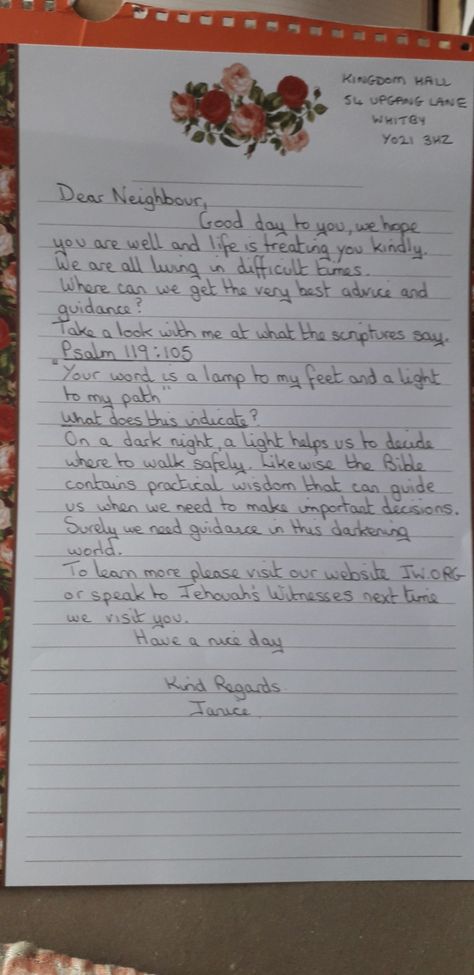 KINGDOM HALL
54 UPGANG LANE
WHITBY
YO21 3HZ
Dear Neighbour,
Good day to you, we hope
you are well and life is treating you kindly.
We are all living in difficult times.
Where can we get the very best advice and
guidance?
Take a look with me at what the scriptures say.
Psalm 119:105
"Your word is a lamp to my feet and a light
to my path"
What does this indicate?
On a dark night, a light helps us to decide
where to walk safely. Likewise the Bible
contains practical wisdom that can guide
us when we need to make important decisions.
Surely we need guidance in this darkening
world.
To learn more please visit our website JW.ORG
or speak to Jehovah's Witnesses next time
we visit you.
Have a nice day
Kind Regards.
Janice